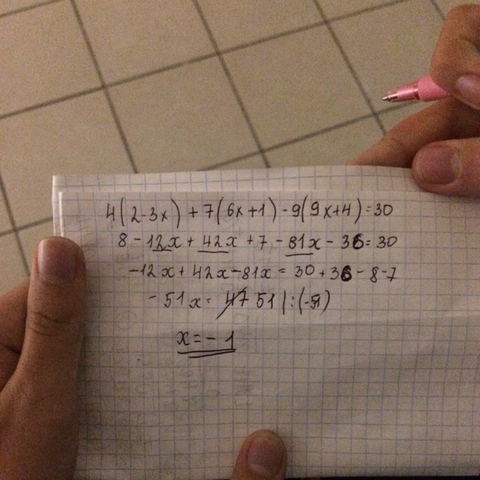 4(2-3x)+7(6x+1)-9(9x+4)=30
8-12x+42x+7-81x-36=30
-12x+42x-81x=30+36-8-7
-51x=47 51 |:(-51)
x=-1